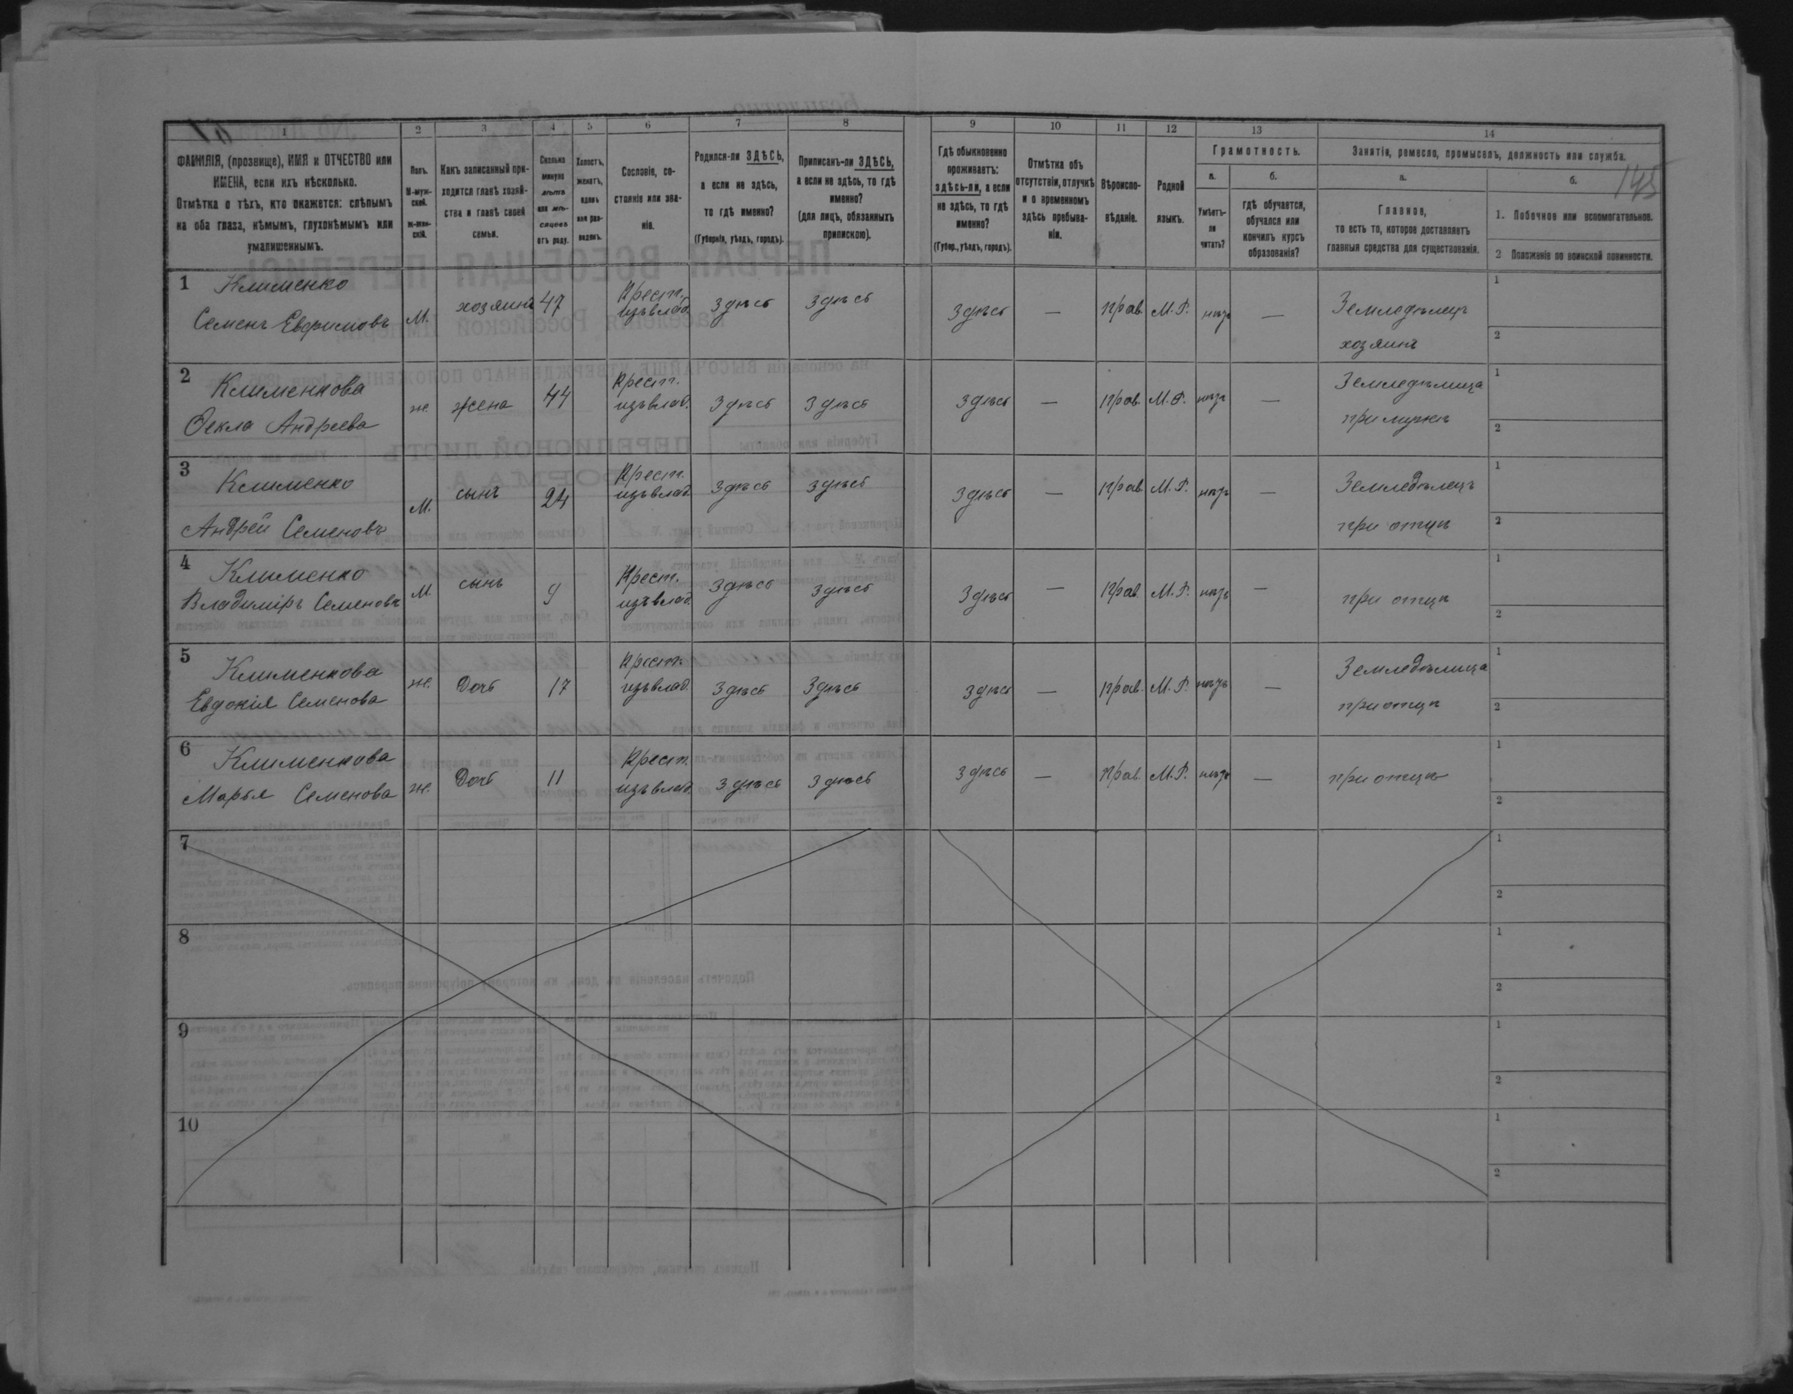 145
1 2 3 4 5 6 7 8 9 10 11 12 13 14
ФАМИЛІЯ, (прозвище), ИМЯ и ОТЧЕСТВО или
ИМЕНА, если ихъ нѣсколько.
Отмѣтка о тѣхъ, кто окажется: слѣпымъ
на оба глаза, нѣмымъ, глухонѣмымъ или
умалишеннымъ.
Полъ.
М-муж-
ской.
Ж-жен-
скій.
Какъ записанный при-
ходится главѣ хозяй-
ства и главѣ своей
семьи.
Сколько
минуло
лѣтъ
или мѣ-
сяцевъ
отъ роду.
Холостъ,
женатъ,
вдовъ
или раз-
веденъ.
Сословіе, со-
стояніе или зва-
ніе.
Родился-ли ЗДѢСЬ,
а если не здѣсь,
то гдѣ именно?
(Губернія, уѣздъ, городъ).
Приписанъ-ли ЗДѢСЬ,
а если не здѣсь, то гдѣ
именно?
(для лицъ, обязанныхъ
припискою).
Гдѣ обыкновенно
проживаетъ:
здѣсь-ли, а если
не здѣсь, то гдѣ
именно?
(Губер., уѣздъ, городъ).
Отмѣтка объ
отсутствіи, отлучкѣ
и о временномъ
здѣсь пребыва-
ніи.
Вѣроиспо-
вѣданіе.
Родной
языкъ.
Грамотность.
а.
Умѣетъ-
ли
читать?
б.
гдѣ обучается,
обучался или
кончилъ курсъ
образованія?
Занятіе, ремесло, промыселъ, должность или служба.
а.
Главное,
то есть то, которое доставляетъ
главныя средства для существованія.
б.
1. Побочное или вспомогательное.
2 Положеніе по воинской повинности.
1 Клименко
Семенъ Евфимовъ М. хозяинъ 47 Крест. изъ влад. Здѣсь Здѣсь Здѣсь — прав. М. Р. нѣтъ — Земледѣлецъ
хозяинъ
1
2
2 Клименкова
Фекла Андреева ж. жена 44 Крест. изъ влад. Здѣсь Здѣсь Здѣсь — прав. М. Р. нѣтъ — Земледѣлица
при мужѣ
1
2
3 Клименко
Андрей Семеновъ М. сынъ 24 Крест. изъ влад. Здѣсь Здѣсь Здѣсь — прав. М. Р. нѣтъ — Земледѣлецъ
при отцѣ
1
2
4 Клименко
Владиміръ Семеновъ М сынъ 9 Крест. изъ влад. Здѣсь Здѣсь Здѣсь — Прав. М. Р. нѣтъ — при отцѣ
1
2
5 Клименкова
Евдокія Семенова ж. Дочь 17 Крест. изъ влад. Здѣсь Здѣсь здѣсь — прав. М. Р. нѣтъ — Земледѣлица
при отцѣ
1
2
6 Клименкова
Марья Семенова ж. Дочь 11 Крест. изъ влад. Здѣсь Здѣсь Здѣсь — Прав. М. Р. нѣтъ — при отцѣ
1
2
7
1
2
8
1
2
9
1
2
10
1
2